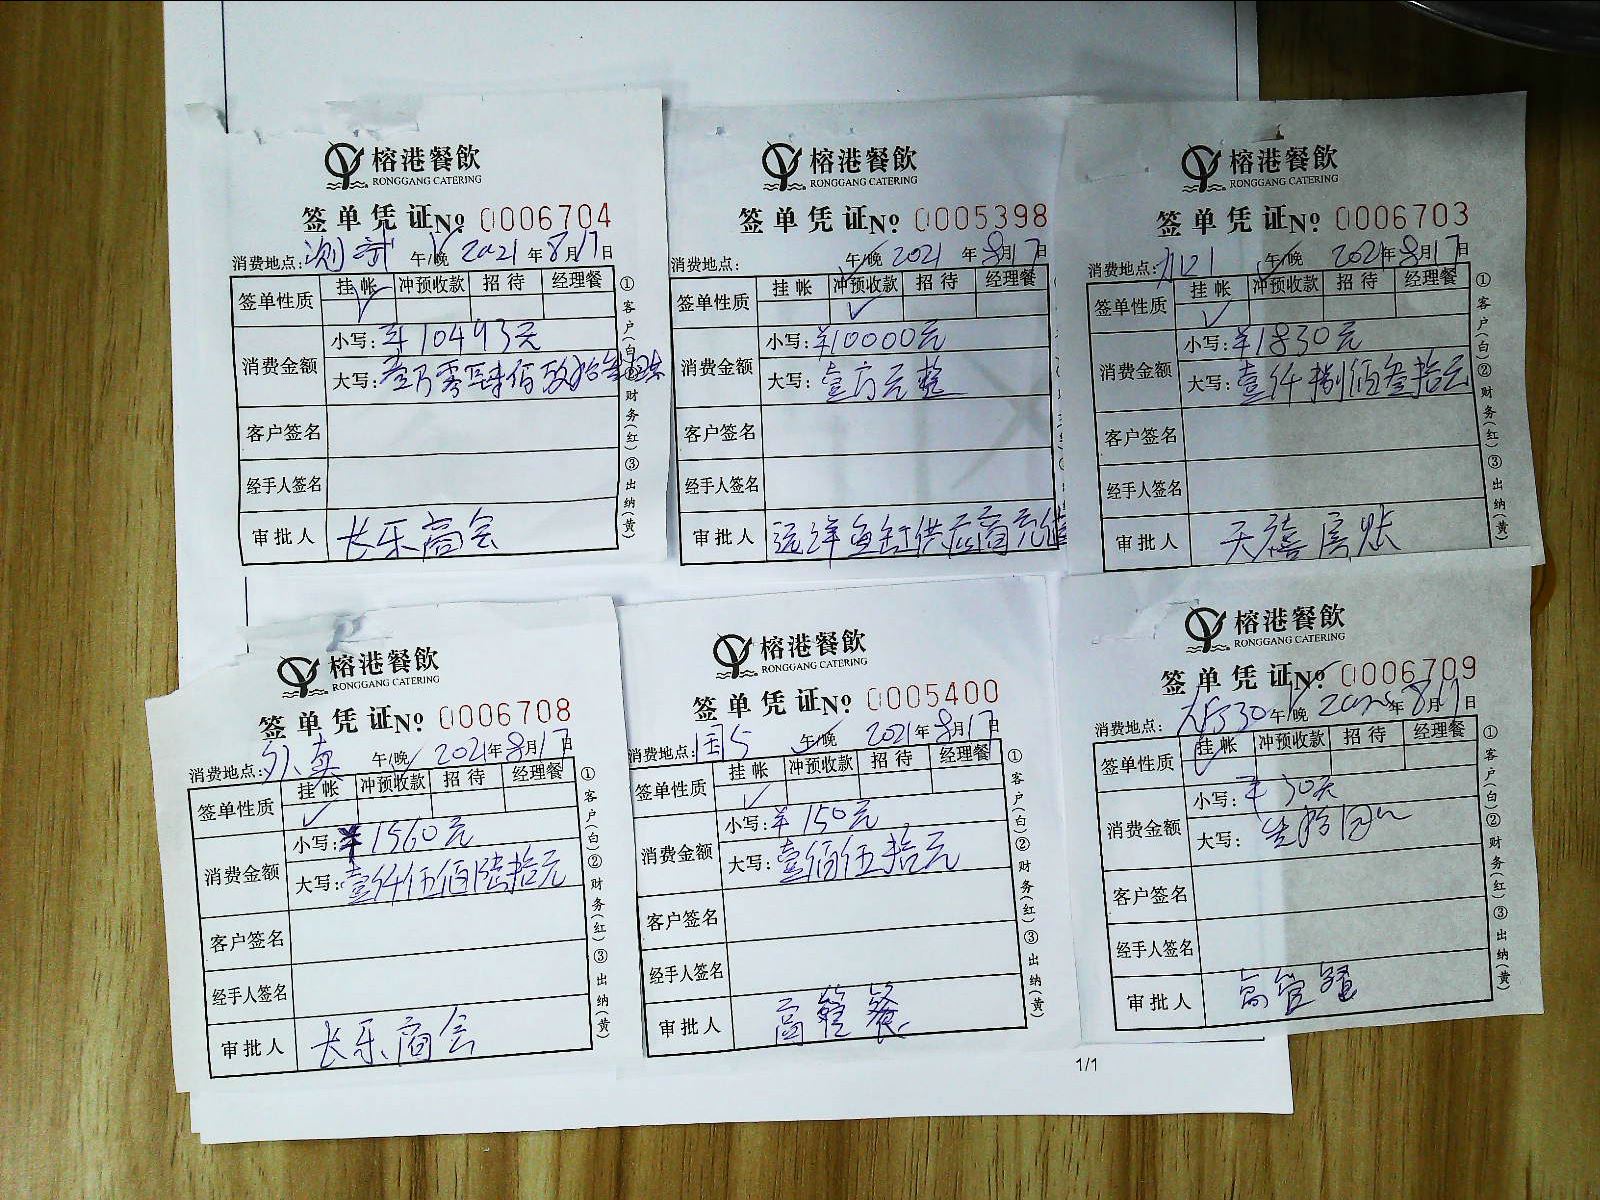 榕港餐飲
RONGGANG CATERING
签单凭证№ 0006704
消费地点: 午/晚 2021年8月17日
签单性质 挂帐 冲预收款 招待 经理餐
消费金额
小写:¥10493元
大写:壹万零肆佰玖拾叁元
客户签名
经手人签名
审批人 长乐商会
①客户(白)②财务(红)③出纳(黄)
榕港餐飲
RONGGANG CATERING
签单凭证№ 0005398
消费地点: 午/晚 2021年8月17日
签单性质 挂帐 冲预收款 招待 经理餐
消费金额
小写:¥10000元
大写:壹万元整
客户签名
经手人签名
审批人 远洋鱼缸供应商充值
榕港餐飲
RONGGANG CATERING
签单凭证№ 0006703
消费地点: 午/晚 2021年8月17日
签单性质 挂帐 冲预收款 招待 经理餐
消费金额
小写:¥1830元
大写:壹仟捌佰叁拾元
客户签名
经手人签名
审批人 天禧房账
①客户(白)②财务(红)③出纳(黄)
榕港餐飲
RONGGANG CATERING
签单凭证№ 0006708
消费地点: 午/晚 2021年8月17日
签单性质 挂帐 冲预收款 招待 经理餐
消费金额
小写:¥1560元
大写:壹仟伍佰陆拾元
客户签名
经手人签名
审批人 长乐商会
①客户(白)②财务(红)③出纳(黄)
榕港餐飲
RONGGANG CATERING
签单凭证№ 0005400
消费地点:国5 午/晚 2021年8月17日
签单性质 挂帐 冲预收款 招待 经理餐
消费金额
小写:¥150元
大写:壹佰伍拾元
客户签名
经手人签名
审批人 高管餐
①客户(白)②财务(红)③出纳(黄)
榕港餐飲
RONGGANG CATERING
签单凭证№ 0006709
消费地点: 午/晚 年8月17日
签单性质 挂帐 冲预收款 招待 经理餐
消费金额
小写:¥30元
大写:
客户签名
经手人签名
审批人 高管餐
①客户(白)②财务(红)③出纳(黄)
1/1